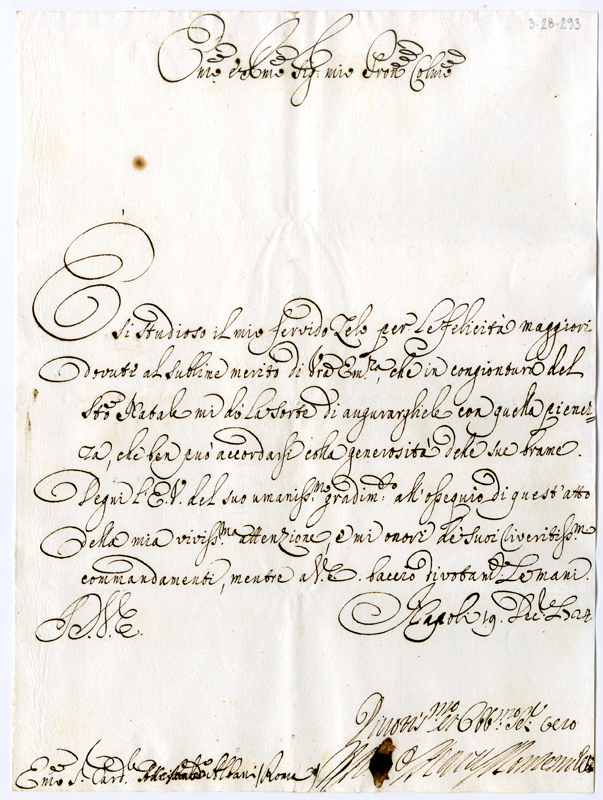 3-28-293
Em.º e Rm.º Sig.r mio Pron Colm.º
È sì studioso il mio fervido Zelo per le felicità maggiori
dovute al sublime merito di Vra Em.za, che in congiontura del
Sto Natale mi dò la sorte di augurarghele con quella pienez=
za, che ben può accordarsi colla generosità delle sue brame.
Degni l'E.V. del suo umaniss.mo gradim.to all'ossequio di quest'atto
della mia viviss.ma attenzione, e mi onori de' suoi riveritiss.mi
commandamenti, mentre a V.E. baccio divotam.te le mani.
D.V.E. Napoli 19. Dec.e 1724
Divotis.mo et Obb.mo Se.r vero
Em.º S.r Card.le Albani / Roma